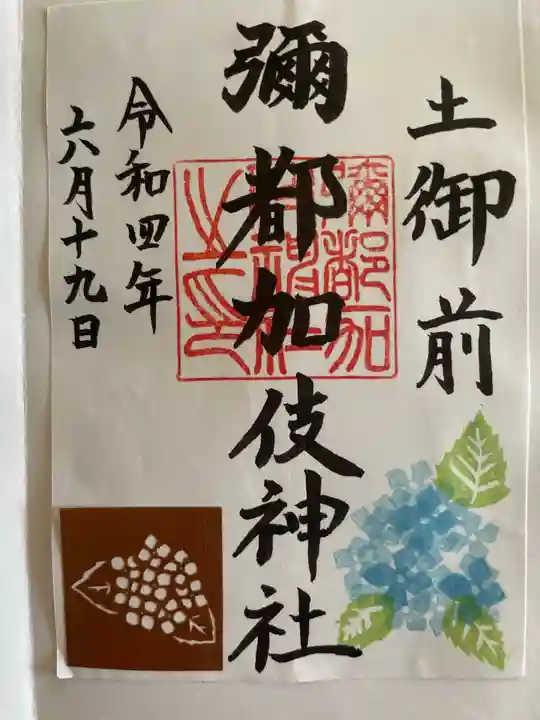 土御前
彌都加伎神社
令和四年
六月十九日